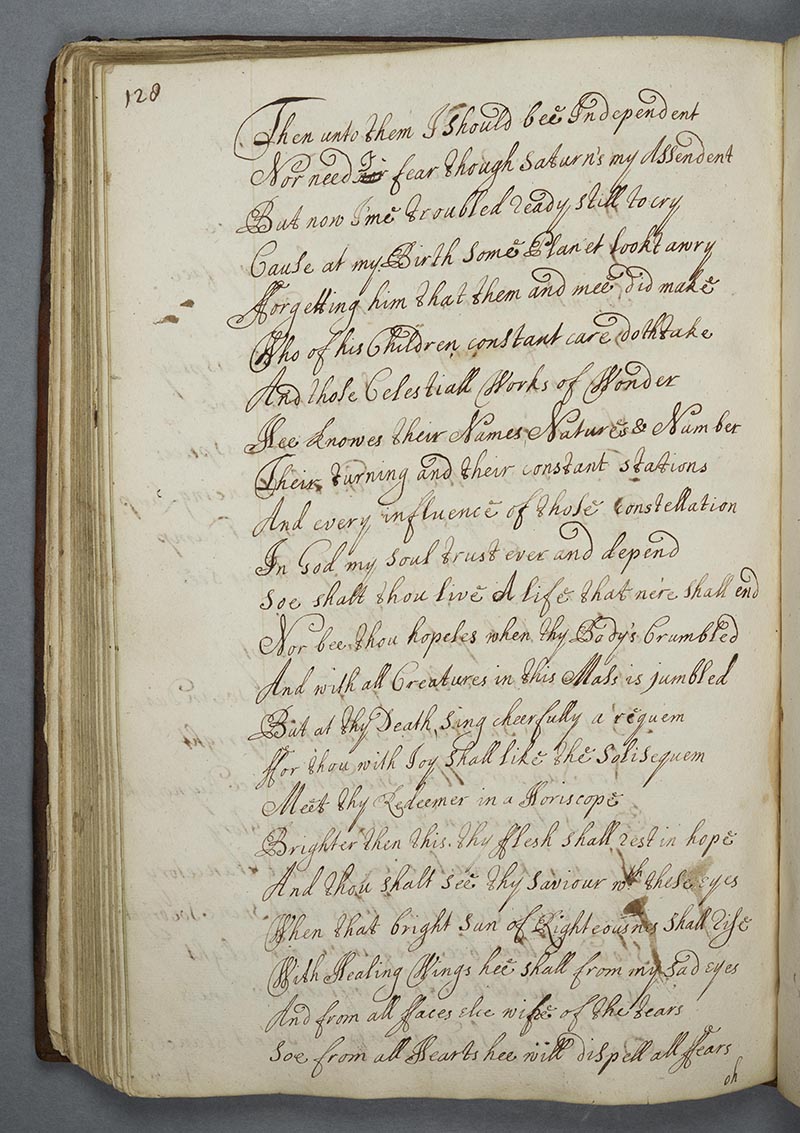 128
Then unto them I should bee Independent
Nor need I fear though Saturn's my Assendent
But now I'me troubled ready still to cry
Cause at my Birth some Planet lookt awry
fforgetting him that them and mee did make
Who of his Children constant care doth take
And those Celestiall Works of Wonder
Hee knowes their Names Natures & Number
Their turning and their constant stations
And every influence of those constellation
In God my soul trust ever and depend
Soe shalt thou live A life that ne're shall end
Nor bee thou hopeles when thy Body's Crumbled
And with all Creatures in this Mass is jumbled
But at thy Death sing cheerfully a requem
ffor thou with Joy shall like the Solisequem
Meet thy Redeemer in a Horiscope
Brighter then this. thy fflesh shall rest in hope
And thou shalt see thy Saviour wth these eyes
When that bright Sun of Righteousnes shall rise
With Healing Wings hee shall from my sad eyes
And from all ffaces else wipe of the tears
Soe from all Hearts hee will dispell all ffears
oh